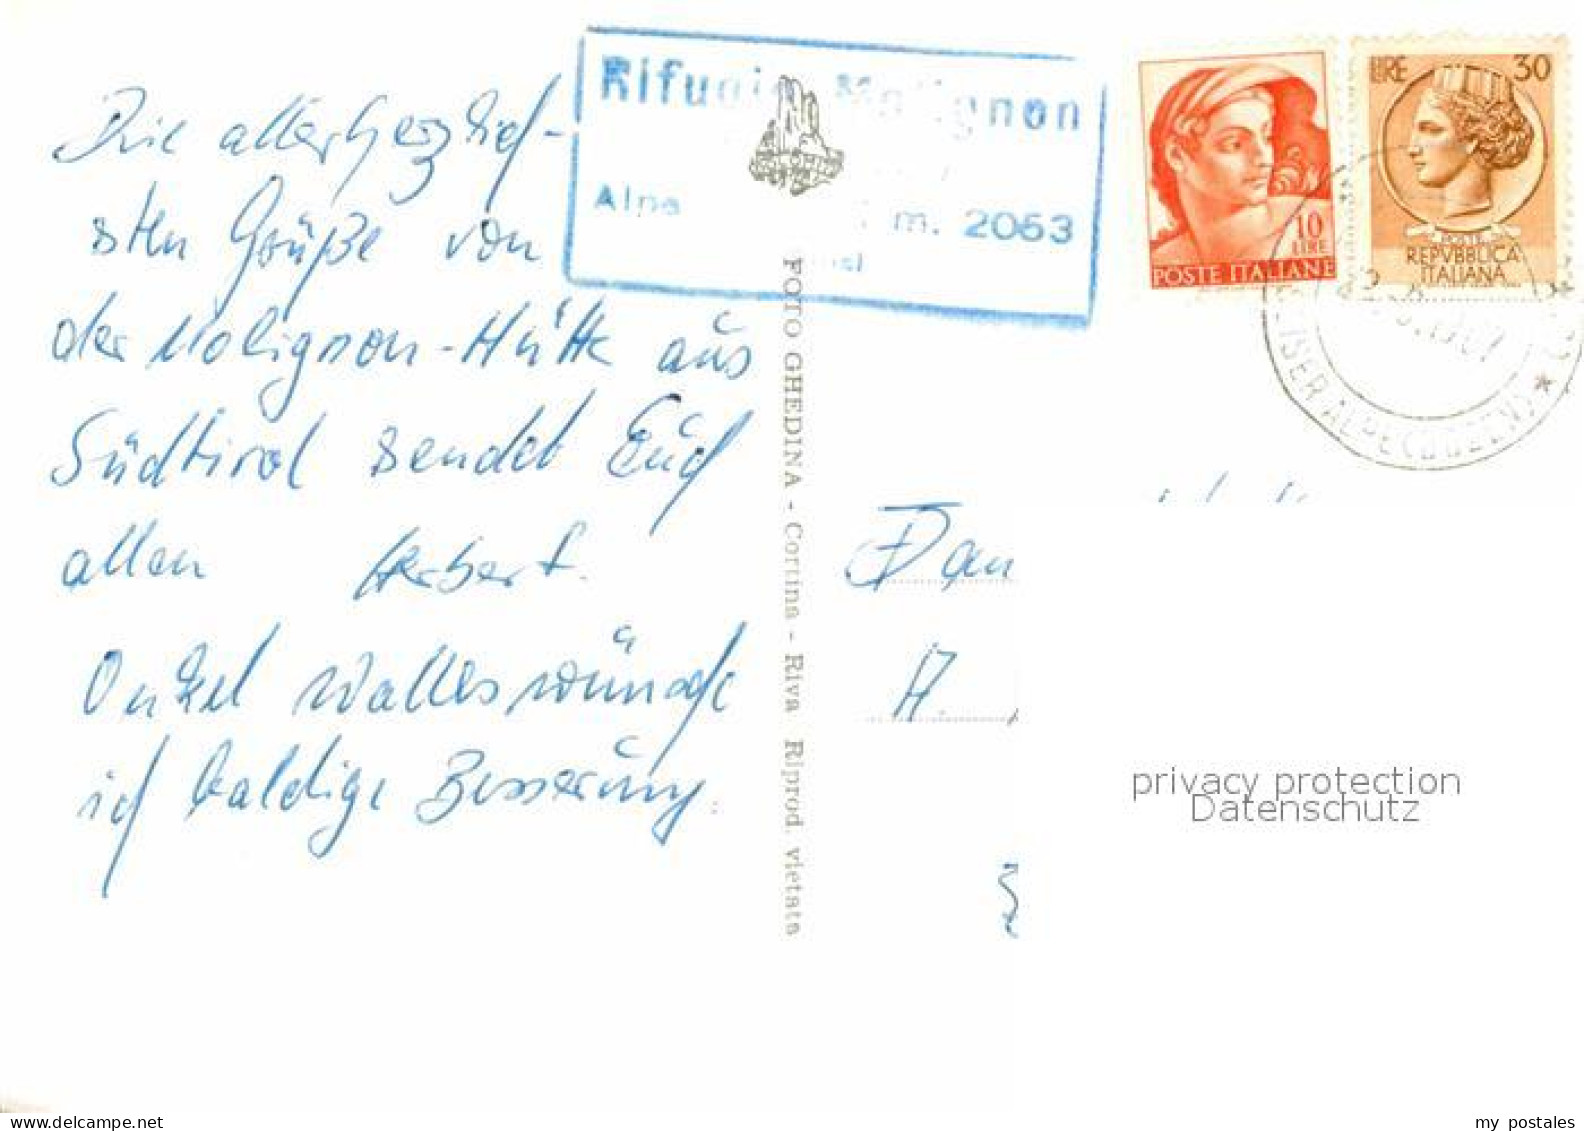 Die allerherzlich-
sten Grüße von
der Molignon-Hütte aus
Südtirol sendet Euch
allen Herbert.
Onkel Walter wünsche
ich baldige Besserung.
Rifugio Molignon
Alpe m. 2053
FOTO GHEDINA - Cortina - Riva Riprod. vietata
10
LIRE
POSTE ITALIANE
LIRE 30
POSTE
REPVBBLICA
ITALIANA
(BOZEN) *
Fam
A.
privacy protection
Datenschutz
www.delcampe.net
my postales